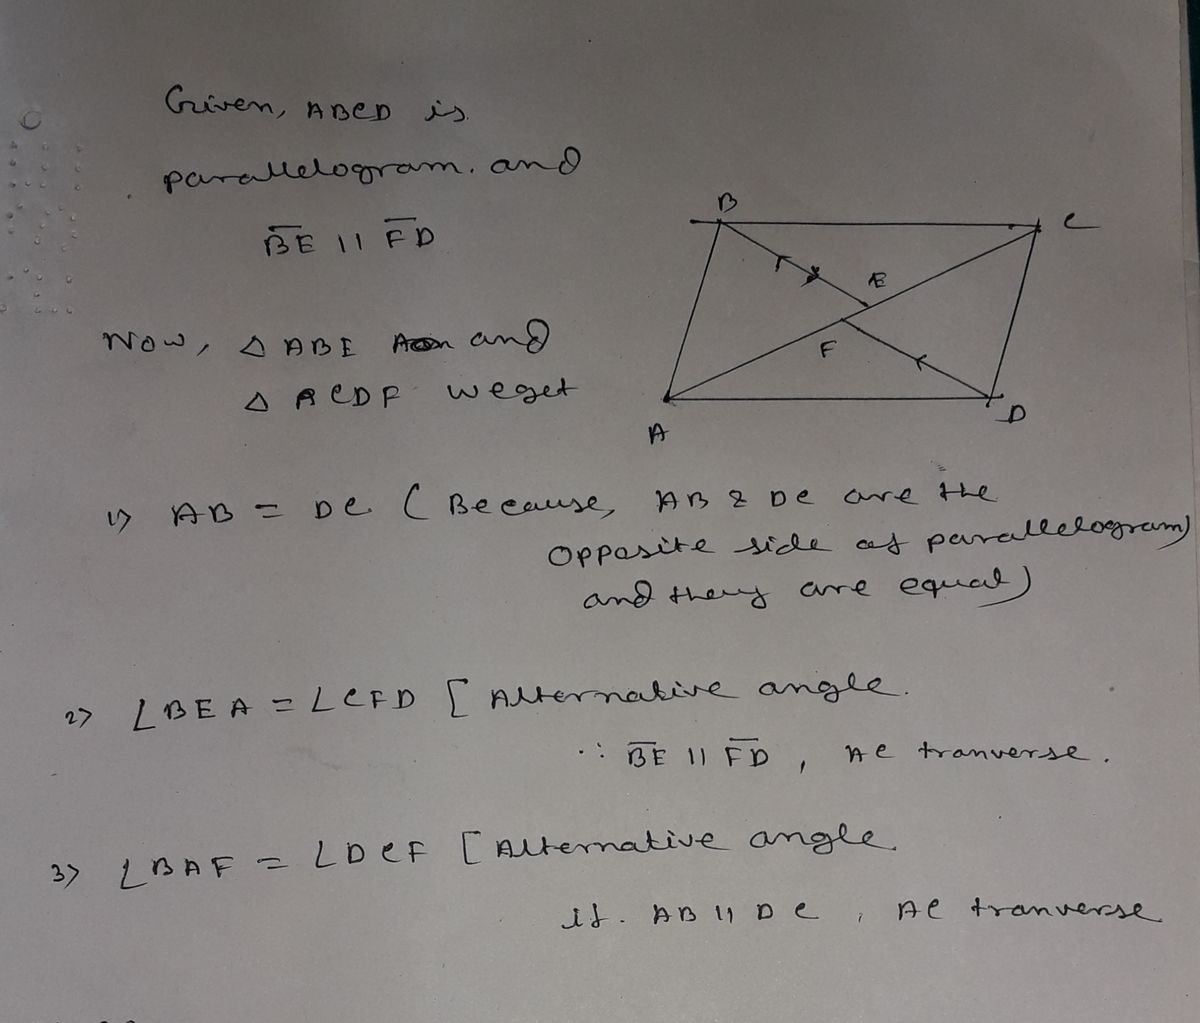 Given, ABCD is
parallelogram. and
BE || FD
B
C
E
F
A
D
Now, △ ABE and
△ CDF we get
1) AB = DC ( Because, AB & DC are the
opposite side of parallelogram)
and they are equal)
2) ∠BEA = ∠CFD [ Alternative angle.
∵ BE || FD , AC tranverse.
3) ∠BAF = ∠DCF [ Alternative angle.
if. AB || DC , AC tranverse